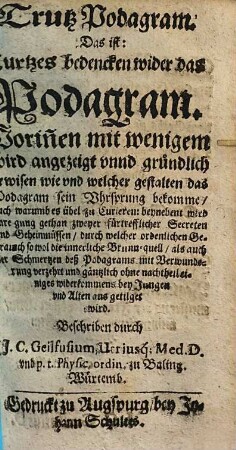 Trutz Podagram.
Das ist:
Kurtzes bedencken wider das
Podagram.
Worinen mit wenigem
wird angezeigt vnnd gründlich
erwisen wie vnd welcher gestalten das
Podagram sein Vhrsprung bekomme/
auch warumb es übel zu Curieren: beynebent wird
gung gethan zweyer fürtrefflicher Secreten
vnd Geheimnussen / durch welcher ordenlichen Ge-
brauch so wol die innerliche Brunn-quell / als auch
der Schmertzen deß Podagrams mit Verwunde-
rung verzehrt vnd gäntzlich ohne nachtheil ei-
niges widerkommens bey Jungen
vnd Alten aus getilget
wird.
Beschriben durch
J. C. Geilfusium, Utriusq; Med. D.
vnd p. t. Physic. ordin. zu Baling.
Würtemb.
Gedruckt zu Augspurg / bey Jo-
hann Schultes.